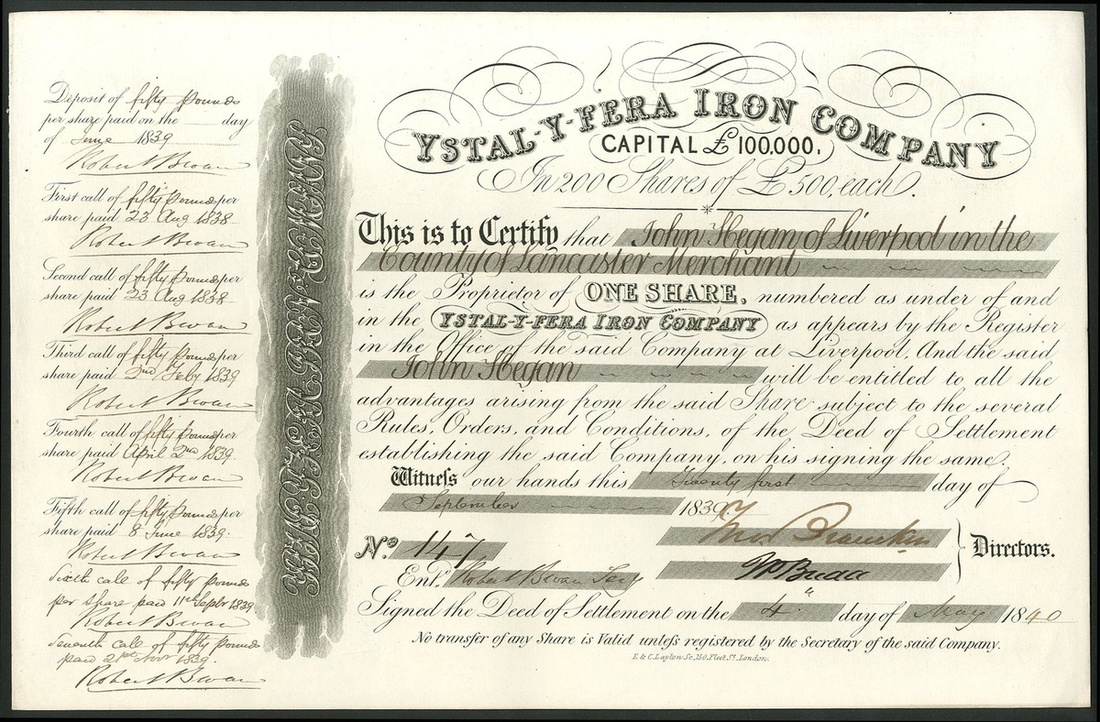 Deposit of fifty pounds
per share paid on the day
of June 1839
Robert Bevan
First call of fifty pounds per
share paid 23 Aug 1838
Robert Bevan
Second call of fifty pounds per
share paid 23 Aug 1838
Robert Bevan
Third call of fifty pounds per
share paid 2nd Feby 1839
Robert Bevan
Fourth call of fifty pounds per
share paid April 2nd 1839
Robert Bevan
Fifth call of fifty pounds per
share paid 8 June 1839.
Robert Bevan
Sixth call of fifty pounds
per share paid 11th Septr 1839
Robert Bevan
Seventh call of fifty pounds
paid 21st Novr 1839.
Robert Bevan
YSTAL-Y-FERA IRON COMPANY
CAPITAL £100,000.
In 200 Shares of £500, each.
This is to Certify that John Hegan of Liverpool in the
County of Lancaster Merchant
is the Proprietor of ONE SHARE, numbered as under of and
in the YSTAL-Y-FERA IRON COMPANY as appears by the Register
in the Office of the said Company at Liverpool, And the said
John Hegan will be entitled to all the
advantages arising from the said Share subject to the several
Rules, Orders, and Conditions, of the Deed of Settlement
establishing the said Company, on his signing the same.
Witness our hands this Twenty first day of
September 1839.
Directors.
No. 147
Entd. Robert Bevan Secy
Signed the Deed of Settlement on the 4" day of May 1840
No transfer of any Share is Valid unless registered by the Secretary of the said Company.
E & C. Layton Sc. 150, Fleet St. London.